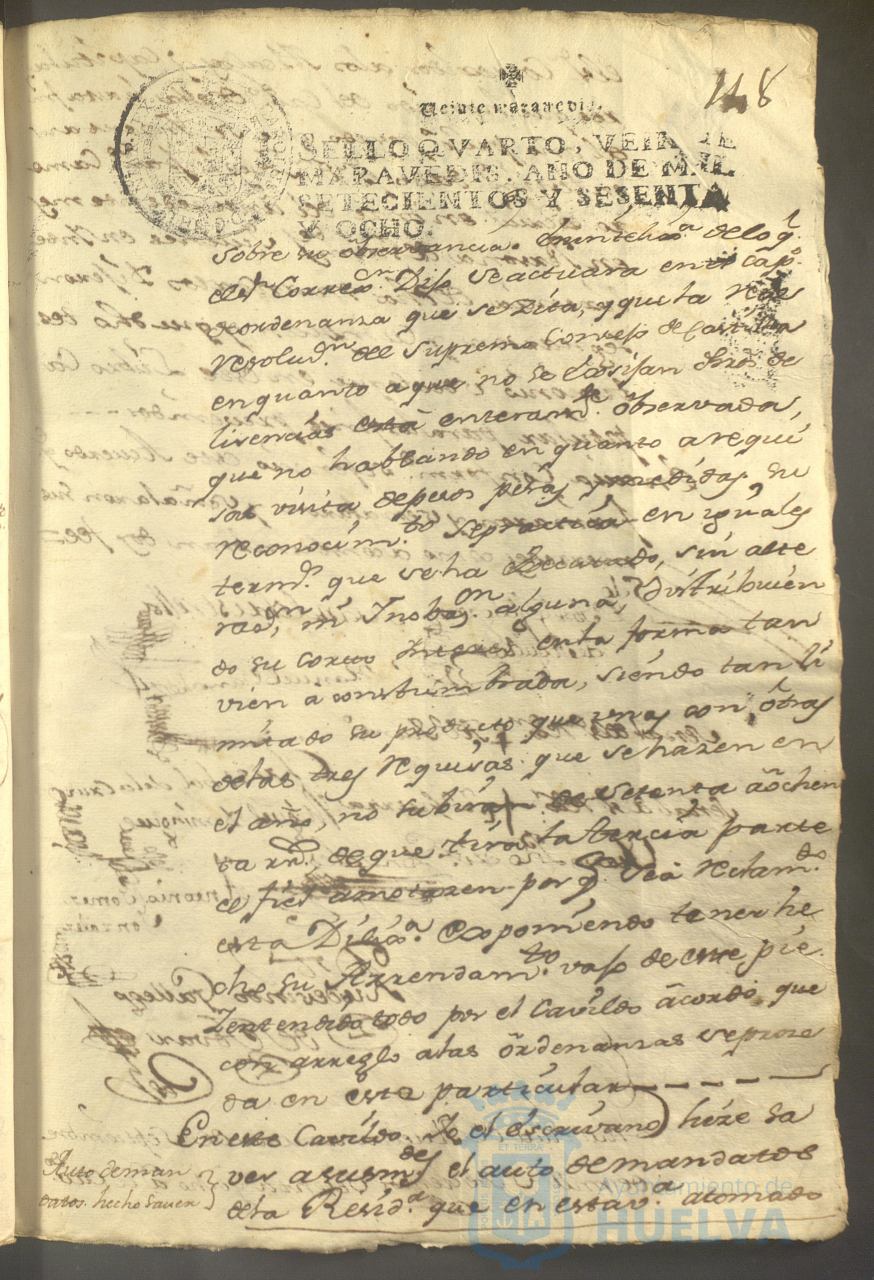 118
Veinte maravedis.
SELLO QVARTO, VEINTE
MARAVEDIS, AÑO DE MIL
SETECIENTOS Y SESENTA
Y OCHO.
sobre su observancia. de lo q.
el Sr. Correxr. Dijo se actuara en el cap.
de ordenanza que se zita, y que la Real
resoluzn. del Supremo Consejo de Castilla
en quanto a que no se exsijan dros. de
lisencias está enteramte. observada,
que no hablando en quanto a requi
sar visita de pesos pesas y medidas su
reconocimto. se practica en iguales
termos. que se ha executado, sin alte
razn. ni Inobazon. alguna, distribuien
do su corto Interes en la forma tan
vien aconstumbrada, siendo tan li
mitado su producto que unas con otras
de las tres requisas que se hazen en
el año, no subirán de setenta a ochen
ta rs. de que tira la tercia parte
el fiel amotazen por q. sea reclamdo.
esta Diliga. exsponiendo tener he
cho su Arrendamto. vajo de este pie.
Y entendido todo por el Cavildo acordó que
con arreglo a las ordenanzas se proze
da en este particular
En este Cavildo Yo el escrivano hize sa
ver a sus mdes. el auto de mandatos
de la Resida. que en esta va. a tomado
Auto de man
datos hecho saver
Ayuntamiento de
HUELVA